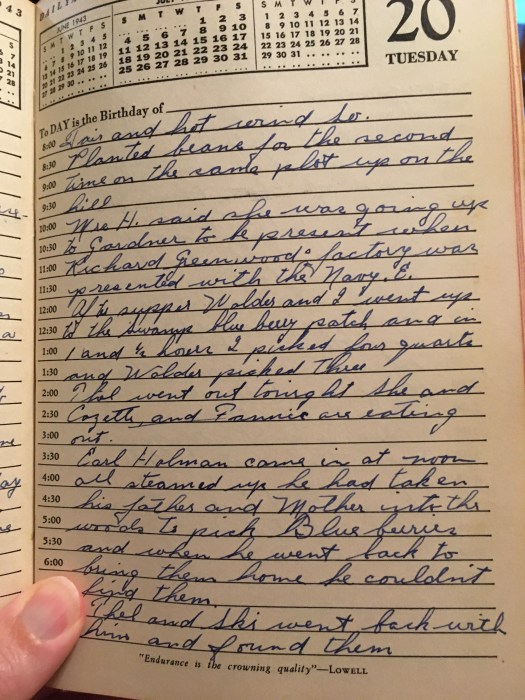 DAILY
JUNE 1943
JULY
S M T W T F S
1 2 3
4 5 6 7 8 9 10
11 12 13 14 15 16 17
18 19 20 21 22 23 24
25 26 27 28 29 30 31
S M T W T F S
1 2 3 4 5 6 7
8 9 10 11 12 13 14
15 16 17 18 19 20 21
22 23 24 25 26 27 28
29 30 31
20
TUESDAY
To DAY is the Birthday of
8:00 Fair and hot wind So.
8:30 Planted beans for the second
9:00 time on the same plot up on the
9:30 hill
10:00 Mrs H. said she was going up
10:30 to Gardner to be present when
11:00 Richard Greenwoods factory was
11:30 presented with the Navy. E.
12:00 After supper Walder and I went up
12:30 to the Swamp blue bery patch and in
1:00 1 and ½ hours I picked four quarts
1:30 and Walder picked three
2:00 went out tonight She and
2:30 Cozette and Fannie are eating
3:00 out.
3:30 Earl Holman came in at noon
4:00 all steamed up he had taken
4:30 his father and Mother into the
5:00 woods to pick Blue berries
5:30 and when he went back to
6:00 bring them home he couldn't
find them.
and Ski went back with
him and found them
"Endurance is the crowning quality"—LOWELL